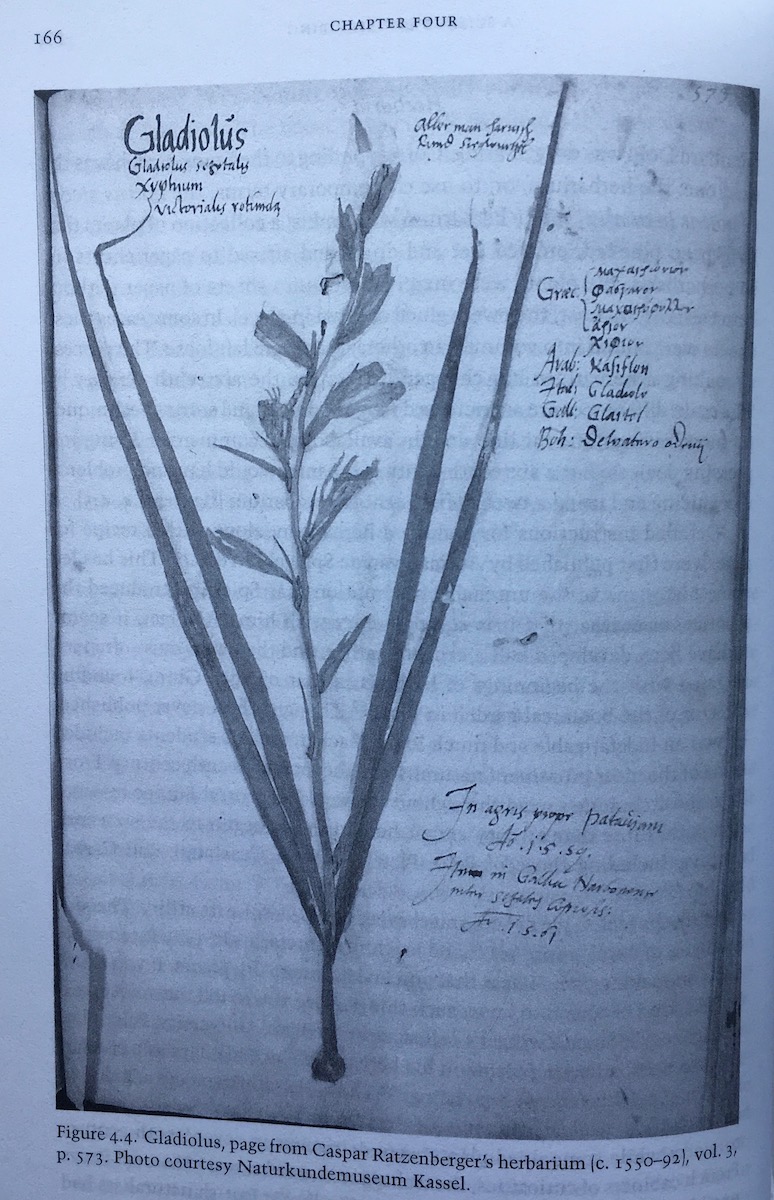 166
CHAPTER FOUR
573
Gladiolus
Gladiolus segetalis
Xyphium
Victorialis rotunda
Aller man harnisch
Græc:
φασγανον
Ξιφιον
Arab: Kasiflon
Ital: Gladiolo
Gall: Glaitel
Boh:
In agris prope patauiam
Ao .1.5.59.
in Gallia Narbonense
inter segetes
Ao .1.5.61
Figure 4.4. Gladiolus, page from Caspar Ratzenberger's herbarium (c. 1550–92), vol. 3,
p. 573. Photo courtesy Naturkundemuseum Kassel.